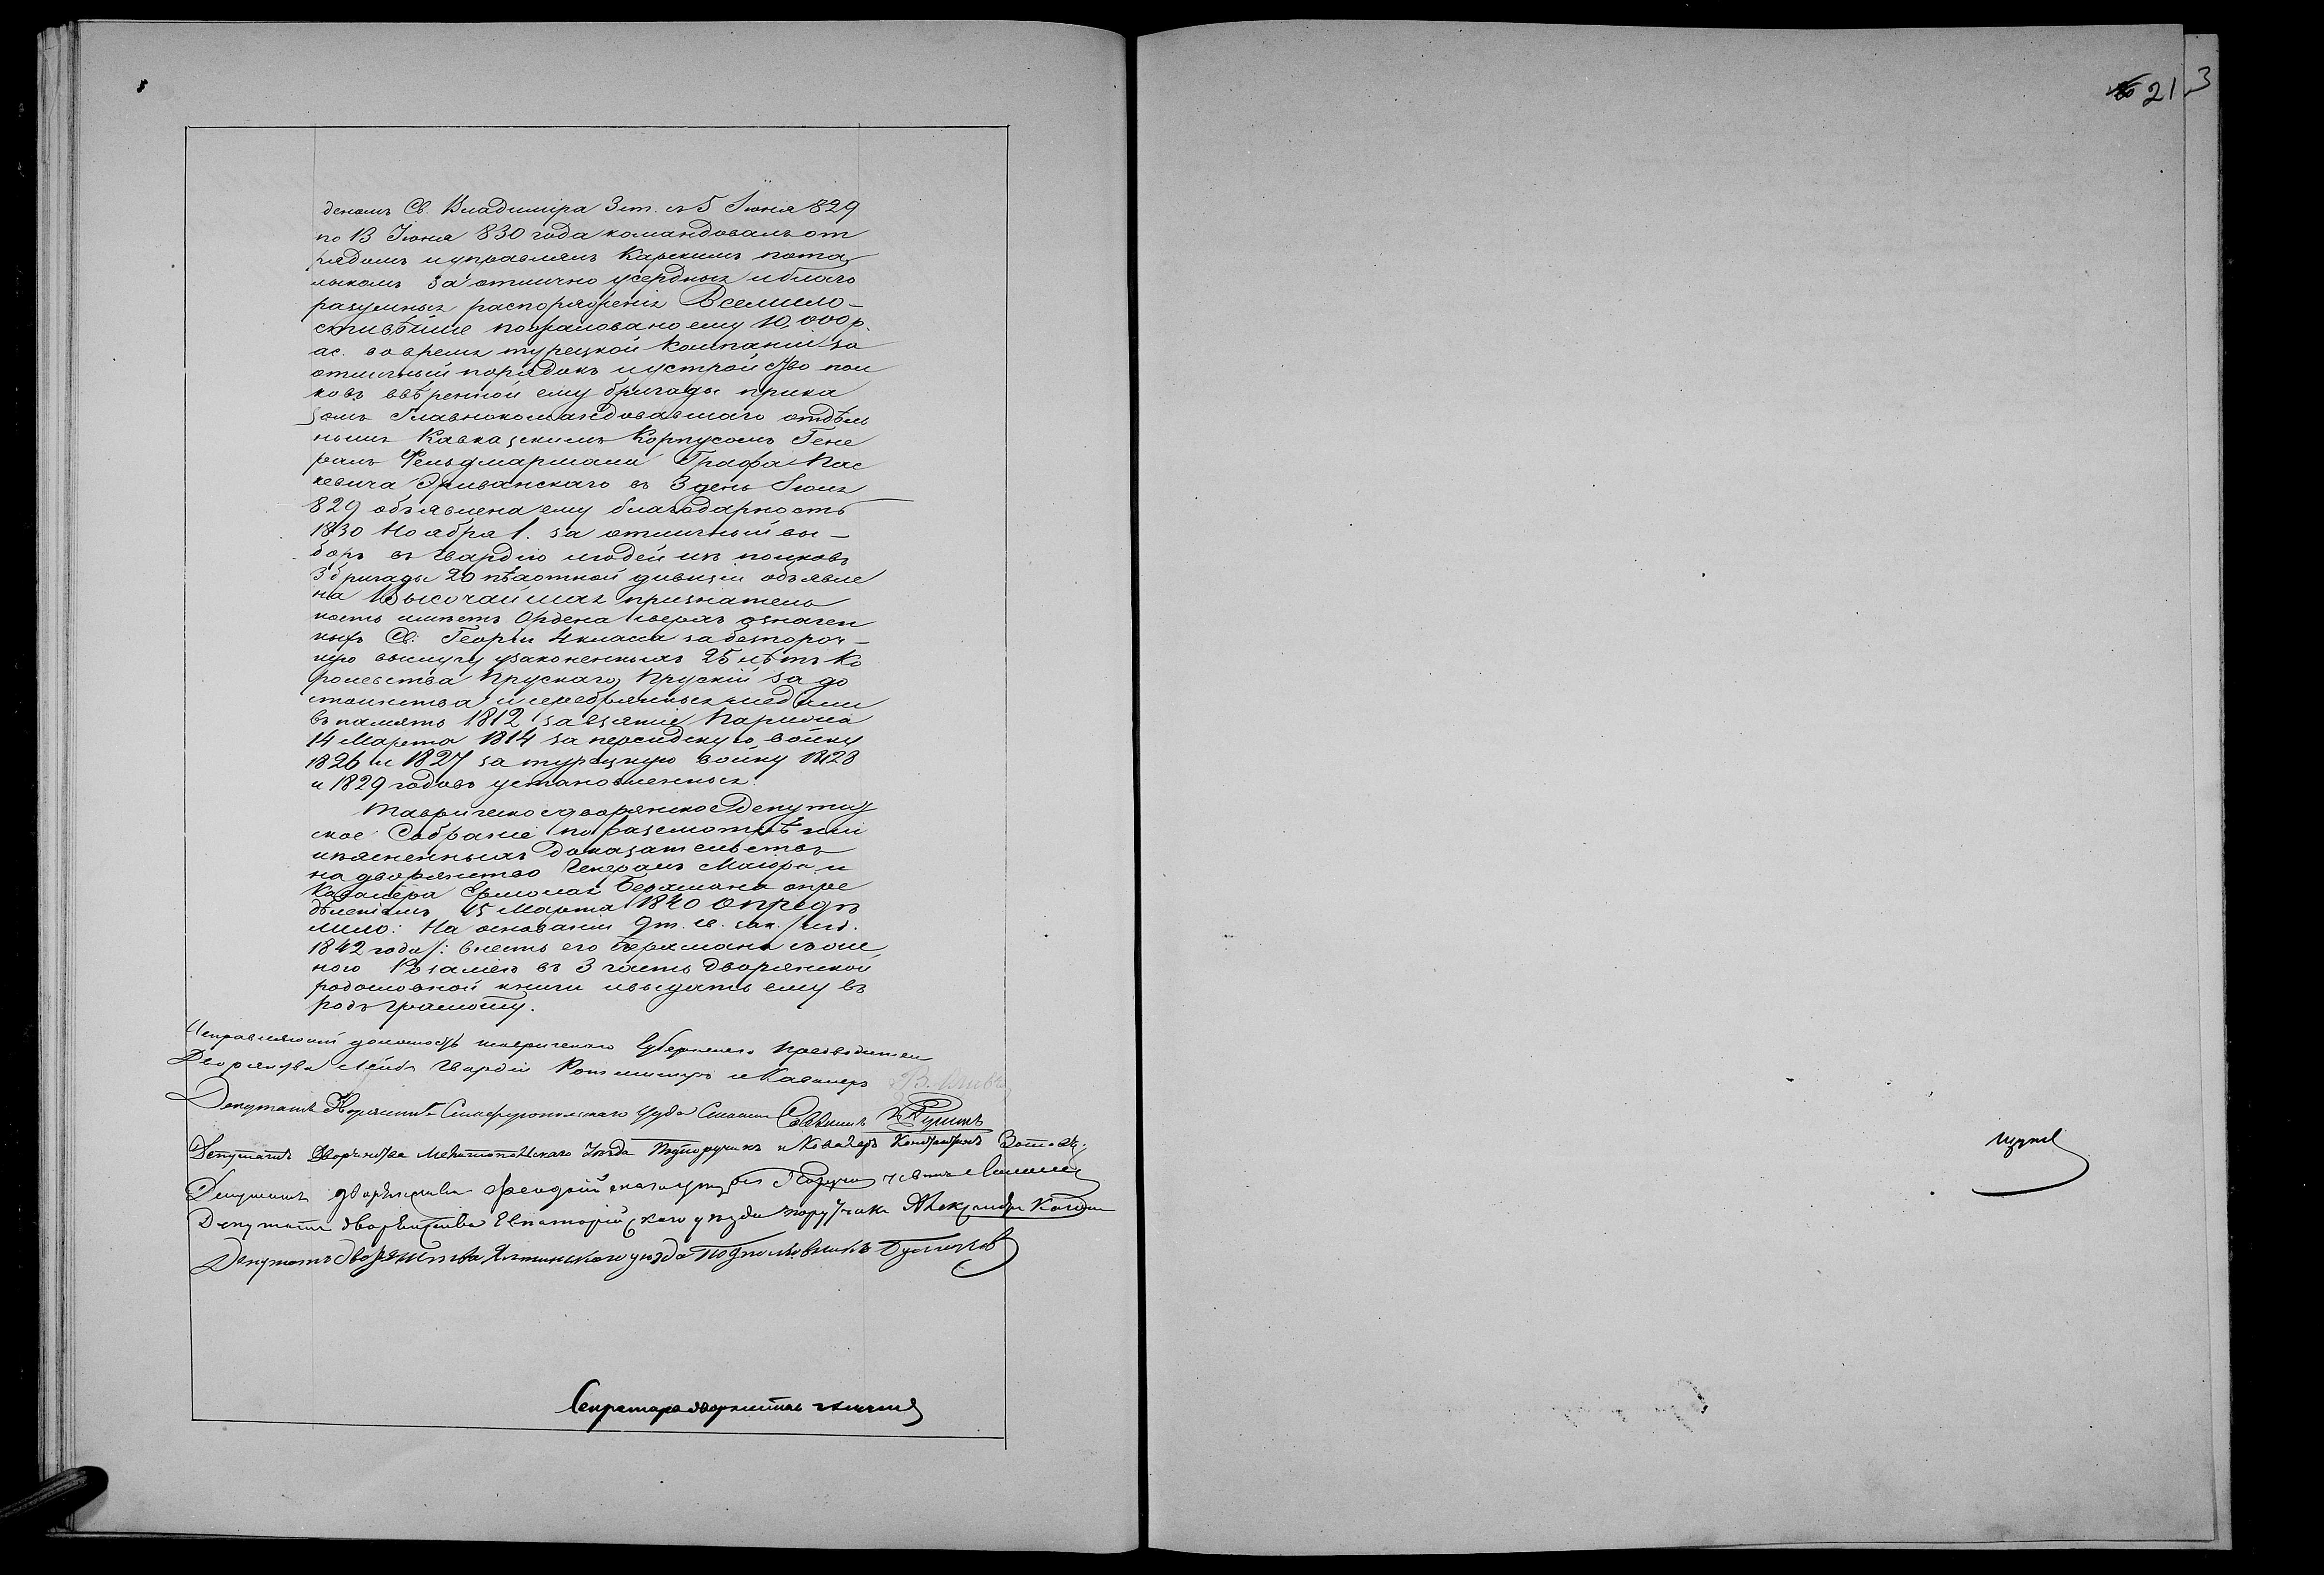 деномъ Св. Владиміра 3 ст. съ 5 Іюня 829
по 13 Іюня 830 года командовалъ от
рядомъ и управлялъ Карскимъ паша
лыкомъ за отлично усердныя и благо
разумныя распоряженія Всемило-
стивѣйше пожаловано ему 10,000 р.
ас. во время турецкой Кампаніи за
отличный порядокъ и устройство пол
ковъ ввѣренной ему бригады прика
зомъ Главнокомандовавшаго отдѣль
нымъ Кавказскимъ Корпусомъ Гене
ралъ Фельдмаршала Графа Пас
кевича Эриванскаго въ 3 день Іюля
829 объявлена ему благодарность
1830 Ноября 1. за отличный вы-
боръ въ Гвардію людей изъ полковъ
3 бригады 20 пѣхотной дивизіи объявле
на Высочайшая признатель
ность имѣетъ Ордена сверхъ означен
ныхъ Св. Георгія 4 класса за безпороч-
ную выслугу узаконенныхъ 25 лѣтъ Ко
ролевства Прускаго, Прускій за до
стоинства и серебрянныя медали
въ память 1812 за взятіе Парижа
14 Марта 1814 за персидскую войну
1826 и 1827 за турецкую войну 1828
и 1829 годовъ установленныя.
Таврическое дворянское Депутат
ское Собраніе по разсмотрѣніи
изъясненныхъ доказательствъ
на дворянство Генералъ Маіора и
Кавалера Ермолая Бергмана опре
дѣленіемъ 15 Марта 1840 опредѣ
лило: На основаніи 9 т. св. зак. /изд.
1842 года/: внесть его Бергмана съ же
ною Розаліею въ 3 часть дворянской
родословной книги и выдать ему въ
родъ грамоту.
Исправляющій должность таврическаго Губернскаго Предводителя
Дворянства Лейбъ Гвардіи Ротмистръ и Кавалеръ
Депутатъ Дворянства Симферопольскаго уѣзда
Депутатъ Дворянства Мелитопольскаго Уѣзда Подпоручикъ и Кавалеръ
Депутатъ дворянства Феодосійскаго уѣзда
Депутатъ дворянства Евпаторійскаго уѣзда поручикъ Александръ
Депутатъ дворянства Ялтинскаго уѣзда Подполковникъ
Секретарь дворянства
213